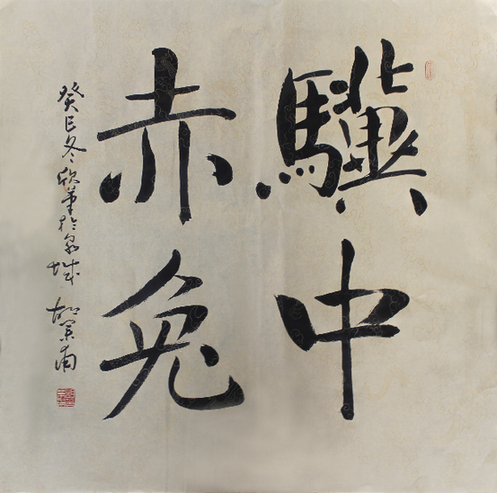 驥中
赤兔
癸巳冬欣筆於泉城